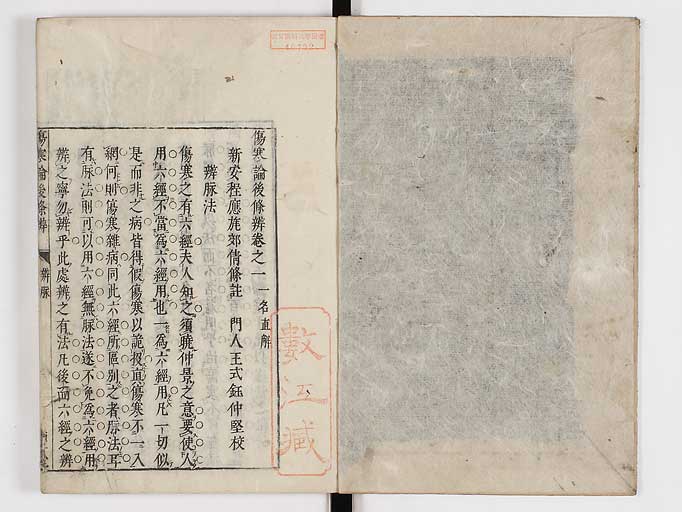 傷寒論後條辨卷之一 一名直解
新安程應旄郊倩條註 門人王式鈺仲堅校
辨脉法
傷寒之有六經夫人知之須曉仲景之意要使人
用六經不當為六經用也一為六經用凡一切似
是而非之病皆得假傷寒以詭我直傷寒不一入
網何則傷寒雜病同此六經所區別之者脉法耳
有脉法則可以用六經無脉法遂不免為六經用
辨之寧勿辨乎此處辨之有法凡後面六經之辨
傷寒論後條辨 辨脉
數江藏